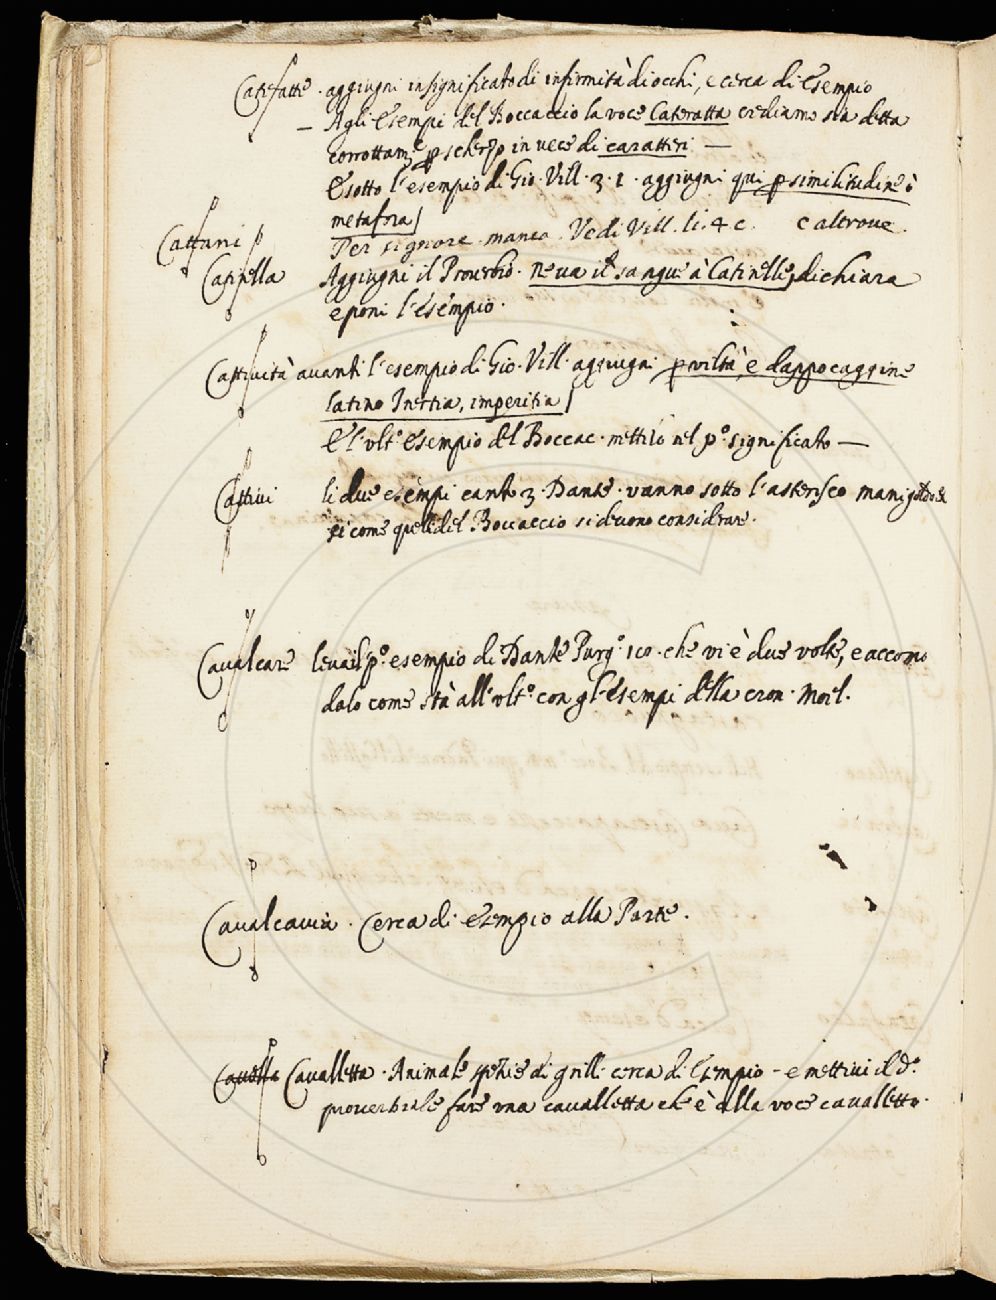 Cateratte · aggiugni in significato di infirmità di occhi, e cerca di esempio
— Agli esempi del Boccaccio la voce Cateratta crediamo sia detta
corrottamᵉ p scherzo in vece di caratteri —
E sotto l'esempio di Gio. Vill. 3. 1. aggiugni qui p similitudine ò
metafora]
Cattani Per signore manca. Vedi Vill. li. 4 c. e altrove.
Aggiugni il Proverbio. Ne va il sangue à Catinelle, dichiara
e poni l'esempio.
Cattività avanti l'esempio di Gio. Vill. aggiugni p viltà, e dappocaggine
latino Inertia, imperitia]
E l'ult.º esempio del Boccac. mettilo nel p.º significato —
Cattivi li due esempi canto 3. Dante. vanno sotto l'asterisco
si come quelli del Boccaccio si devono considerare.
Cavalcare leva il p.º esempio di Dante Purg.º che vi è due volte, e accomo
dalo come stà all'ult.º con gl'esempi della cron. Morl.
Cavalcavia. Cerca di esempio alla Parte.
Cavalletta. Animale spezie di grilli cerca di esempio – e mettivi il d.º
proverbiale fare una cavalletta che è alla voce cavalletto.